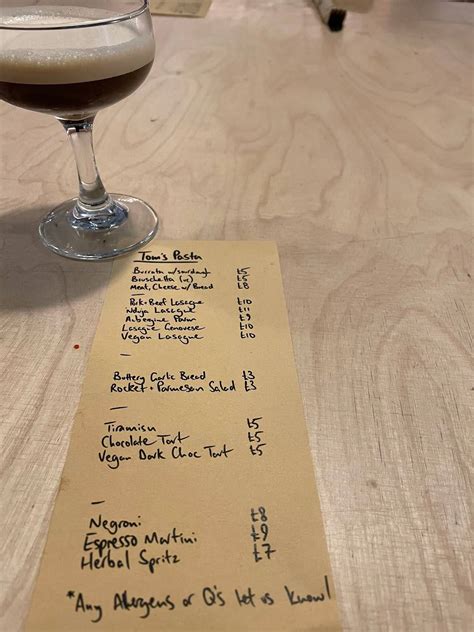 Tom's Pasta
Burrata w/sourdough £5
Bruschetta (ve) £5
Meat, Cheese w/ Bread £8
—
Pork+Beef Lasagne £10
Nduja Lasagne £11
Aubergine Parm £9
Lasagne Genovese £10
Vegan Lasagne £10
—
Buttery Garlic Bread £3
Rocket + Parmesan Salad £3
—
Tiramisu £5
Chocolate Tart £5
Vegan Dark Choc Tart £5
—
Negroni £8
Espresso Martini £9
Herbal Spritz £7
*Any Allergens or Q's let us know!